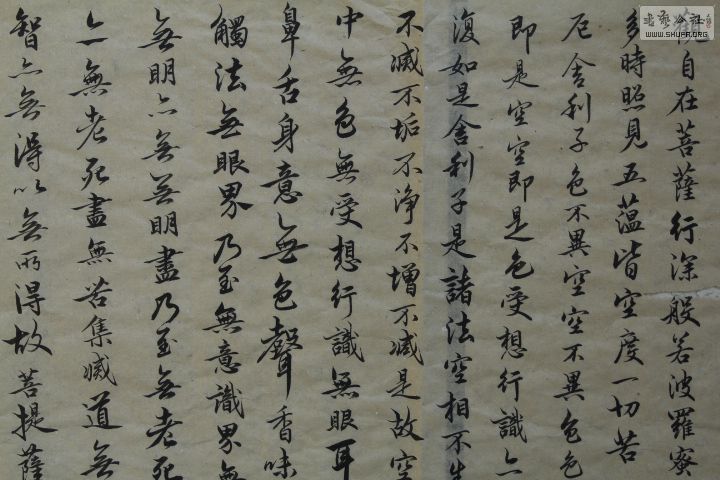 觀自在菩薩行深般若波羅蜜
多時照見五蘊皆空度一切苦
厄舍利子色不異空空不異色色
即是空空即是色受想行識亦
復如是舍利子是諸法空相不生
不滅不垢不淨不增不減是故空
中無色無受想行識無眼耳
鼻舌身意無色聲香味
觸法無眼界乃至無意識界無
無明亦無無明盡乃至無老死
亦無老死盡無苦集滅道無
智亦無得以無所得故菩提薩
書藝公社
WWW.SHUFA.ORG